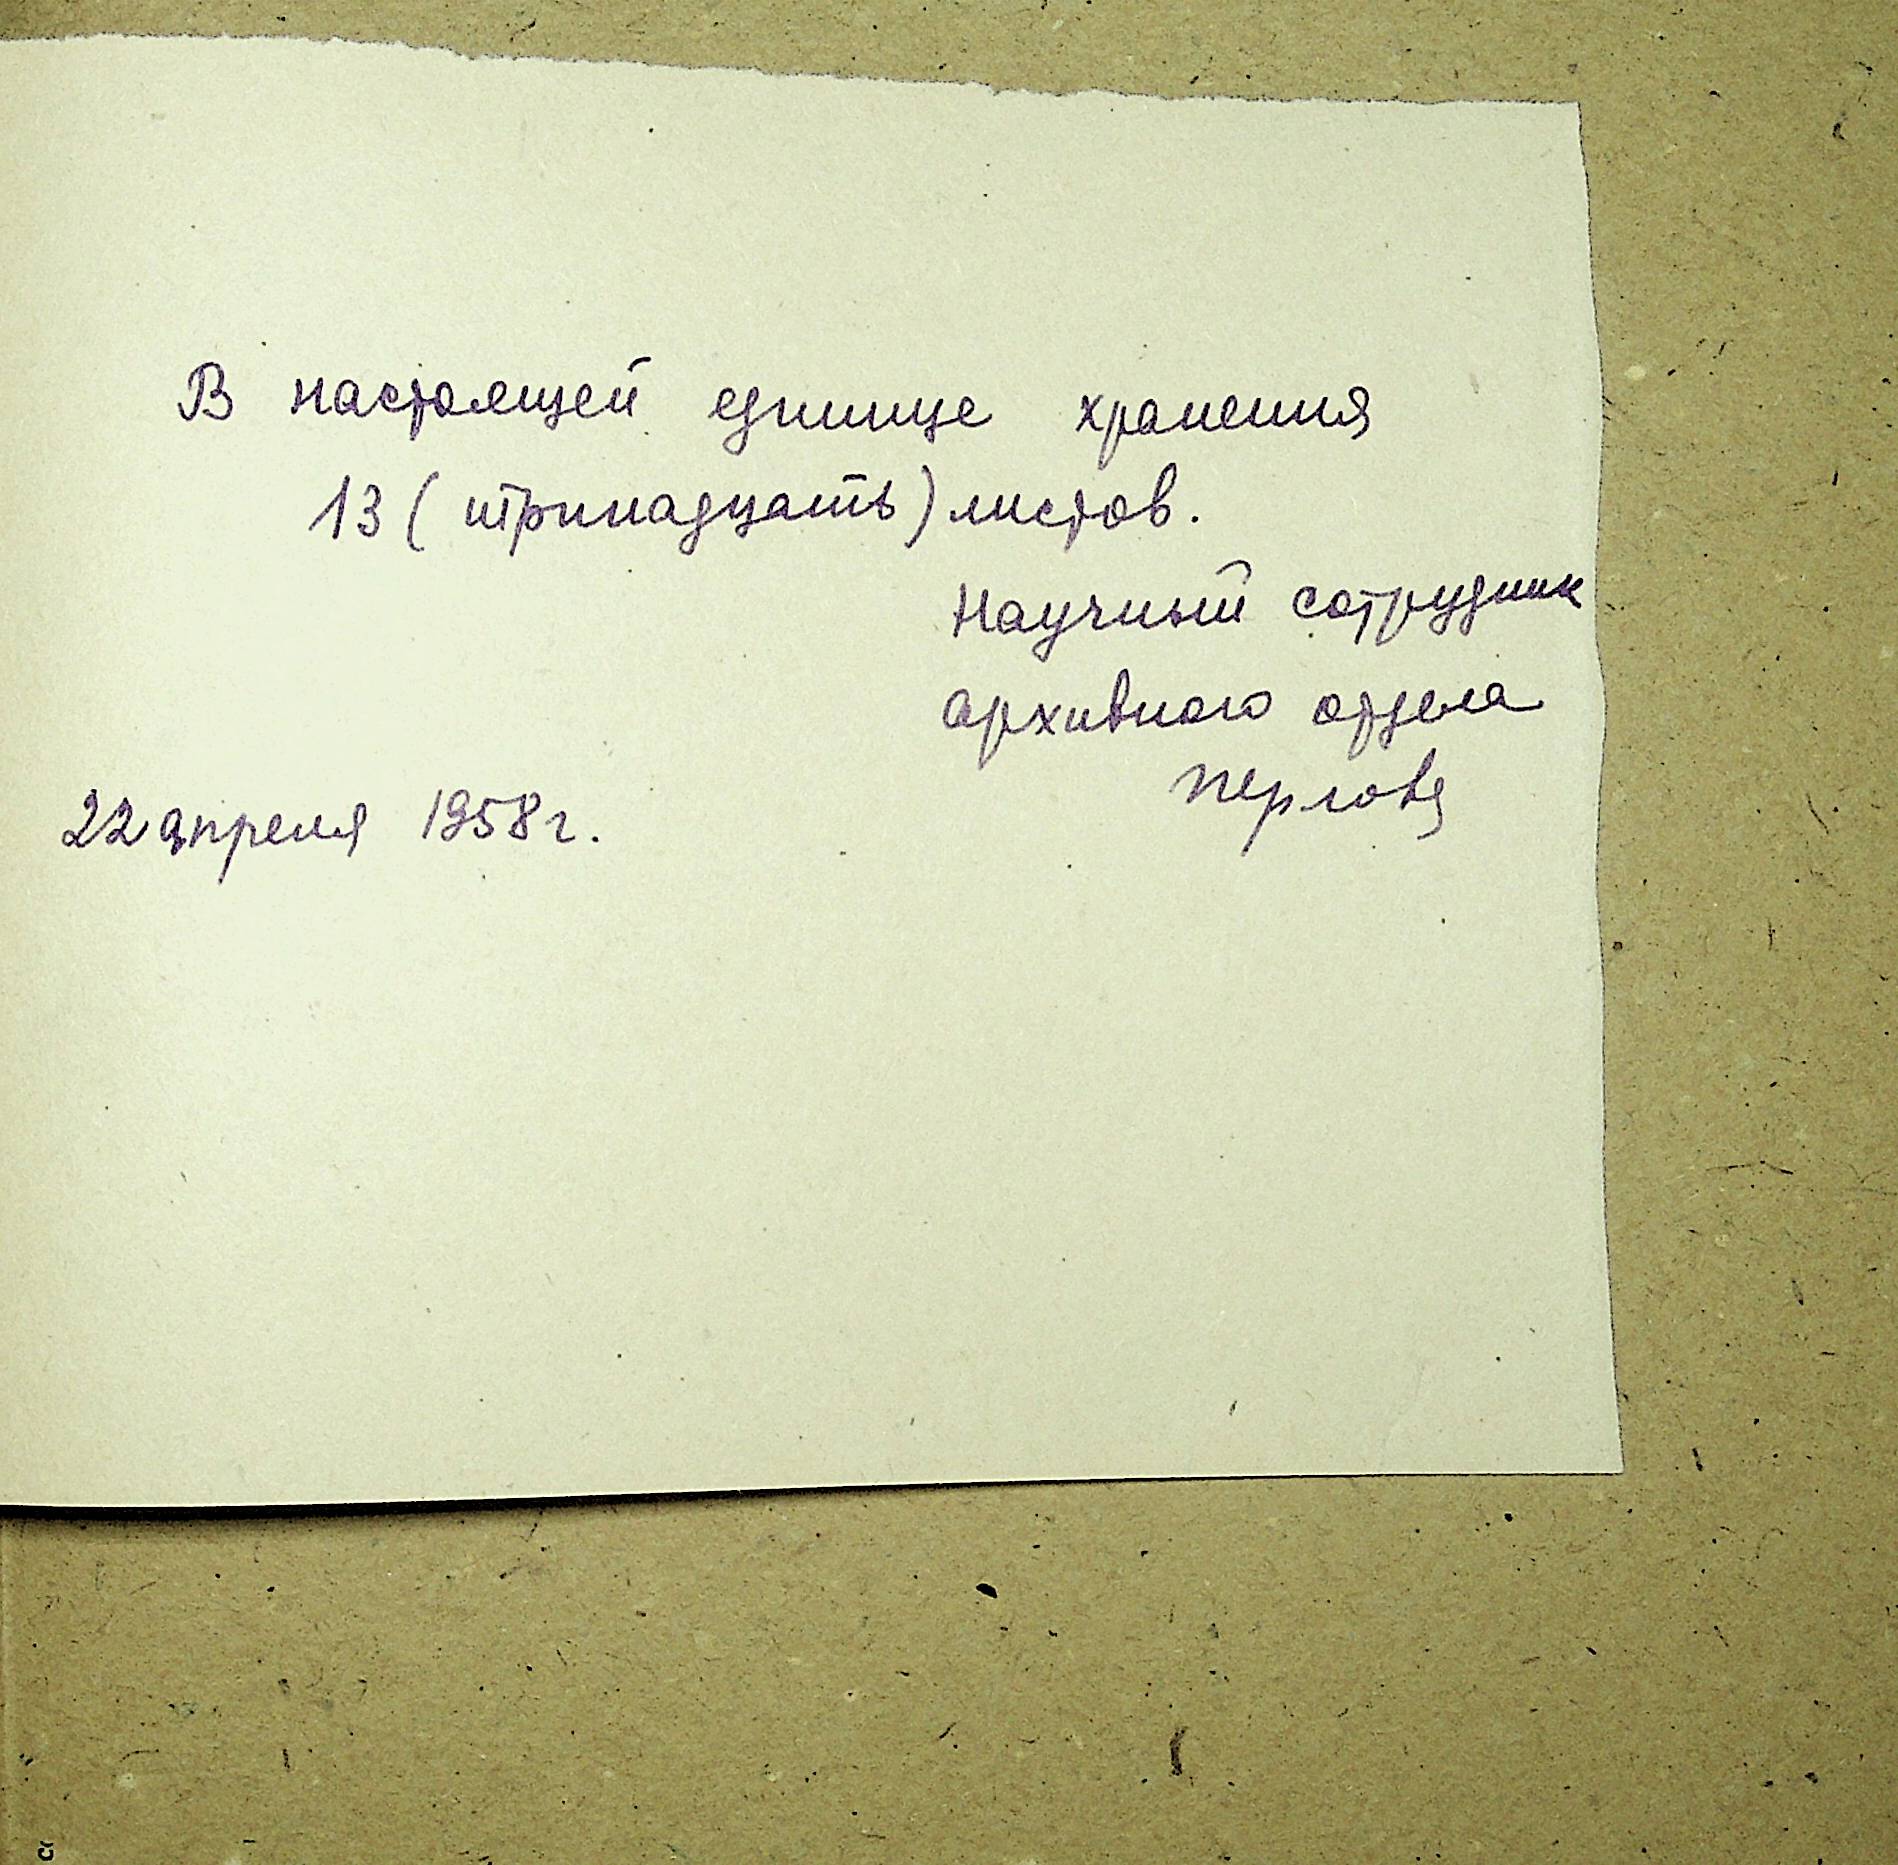 В настоящей единице хранения
13 (тринадцать) листов.
Научный сотрудник
архивного отдела
Перлова
22 апреля 1958 г.